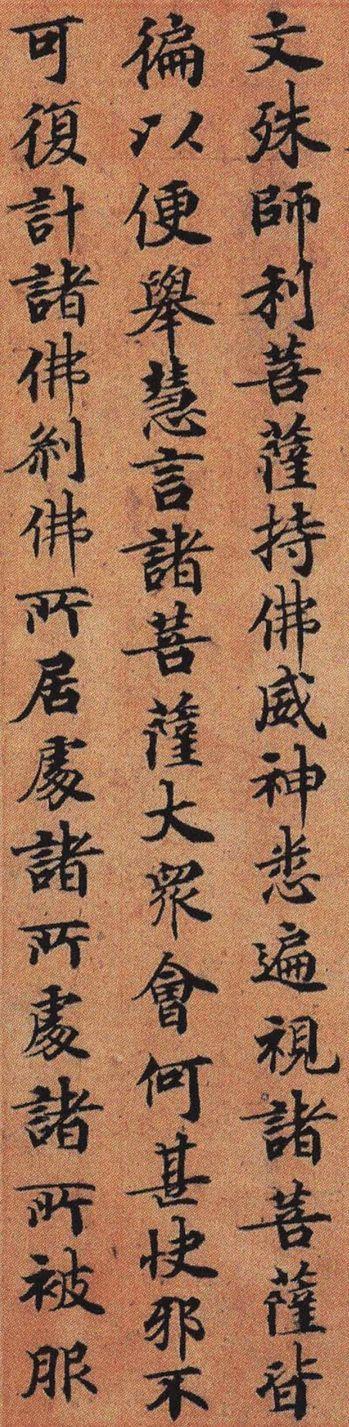 文殊師利菩薩持佛威神悉遍視諸菩薩皆
徧以便舉慧言諸菩薩大眾會何甚快邪不
可復計諸佛刹佛所居處諸所處諸所被服